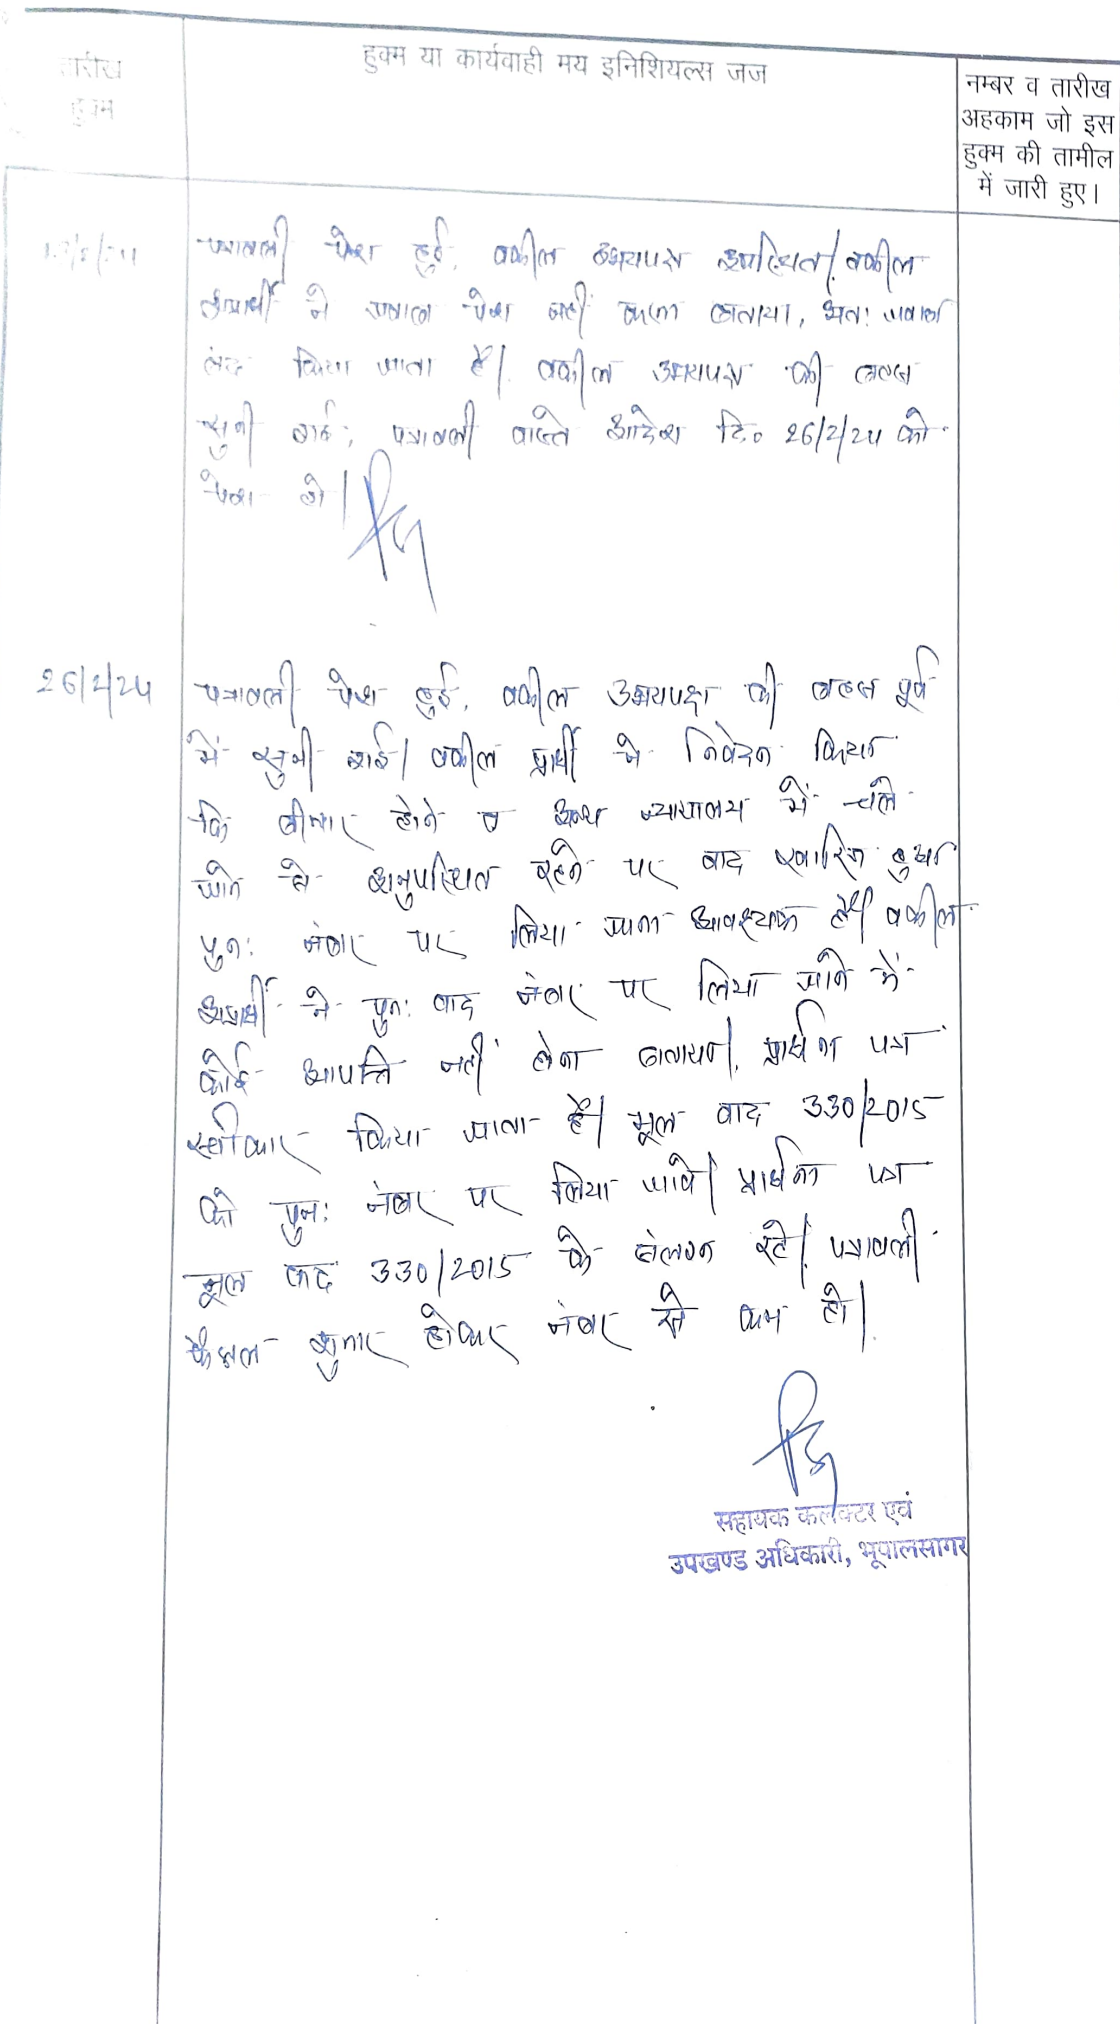 तारीख
हुक्म
हुक्म या कार्यवाही मय इनिशियल्स जज
नम्बर व तारीख
अहकाम जो इस
हुक्म की तामील
में जारी हुए।
पत्रावली पेश हुई, वकील उभयपक्ष उपस्थित। वकील
अप्रार्थी ने जवाब पेश नहीं करना बताया, अतः जवाब
बंद किया जाता है। वकील उभयपक्ष की बहस
सुनी गई, पत्रावली वास्ते आदेश दि० 26/2/24 को
पेश हो।
26/2/24
पत्रावली पेश हुई, वकील उभयपक्ष की बहस पूर्व
में सुनी गई। वकील प्रार्थी ने निवेदन किया
कि बीमार होने व अन्य न्यायालय में चले
जाने से अनुपस्थित रहने पर वाद खारिज हुआ
पुनः नंबर पर लिया जाना आवश्यक है। वकील
अप्रार्थी ने पुनः वाद नंबर पर लिया जाने में
कोई आपत्ति नहीं होना बताया। प्रार्थना पत्र
स्वीकार किया जाता है। मूल वाद 330/2015
को पुनः नंबर पर लिया जावे। प्रार्थना पत्र
मूल वाद 330/2015 के संलग्न रहे। पत्रावली
फैसल शुमार होकर नंबर से कम हो।
सहायक कलक्टर एवं
उपखण्ड अधिकारी, भूपालसागर